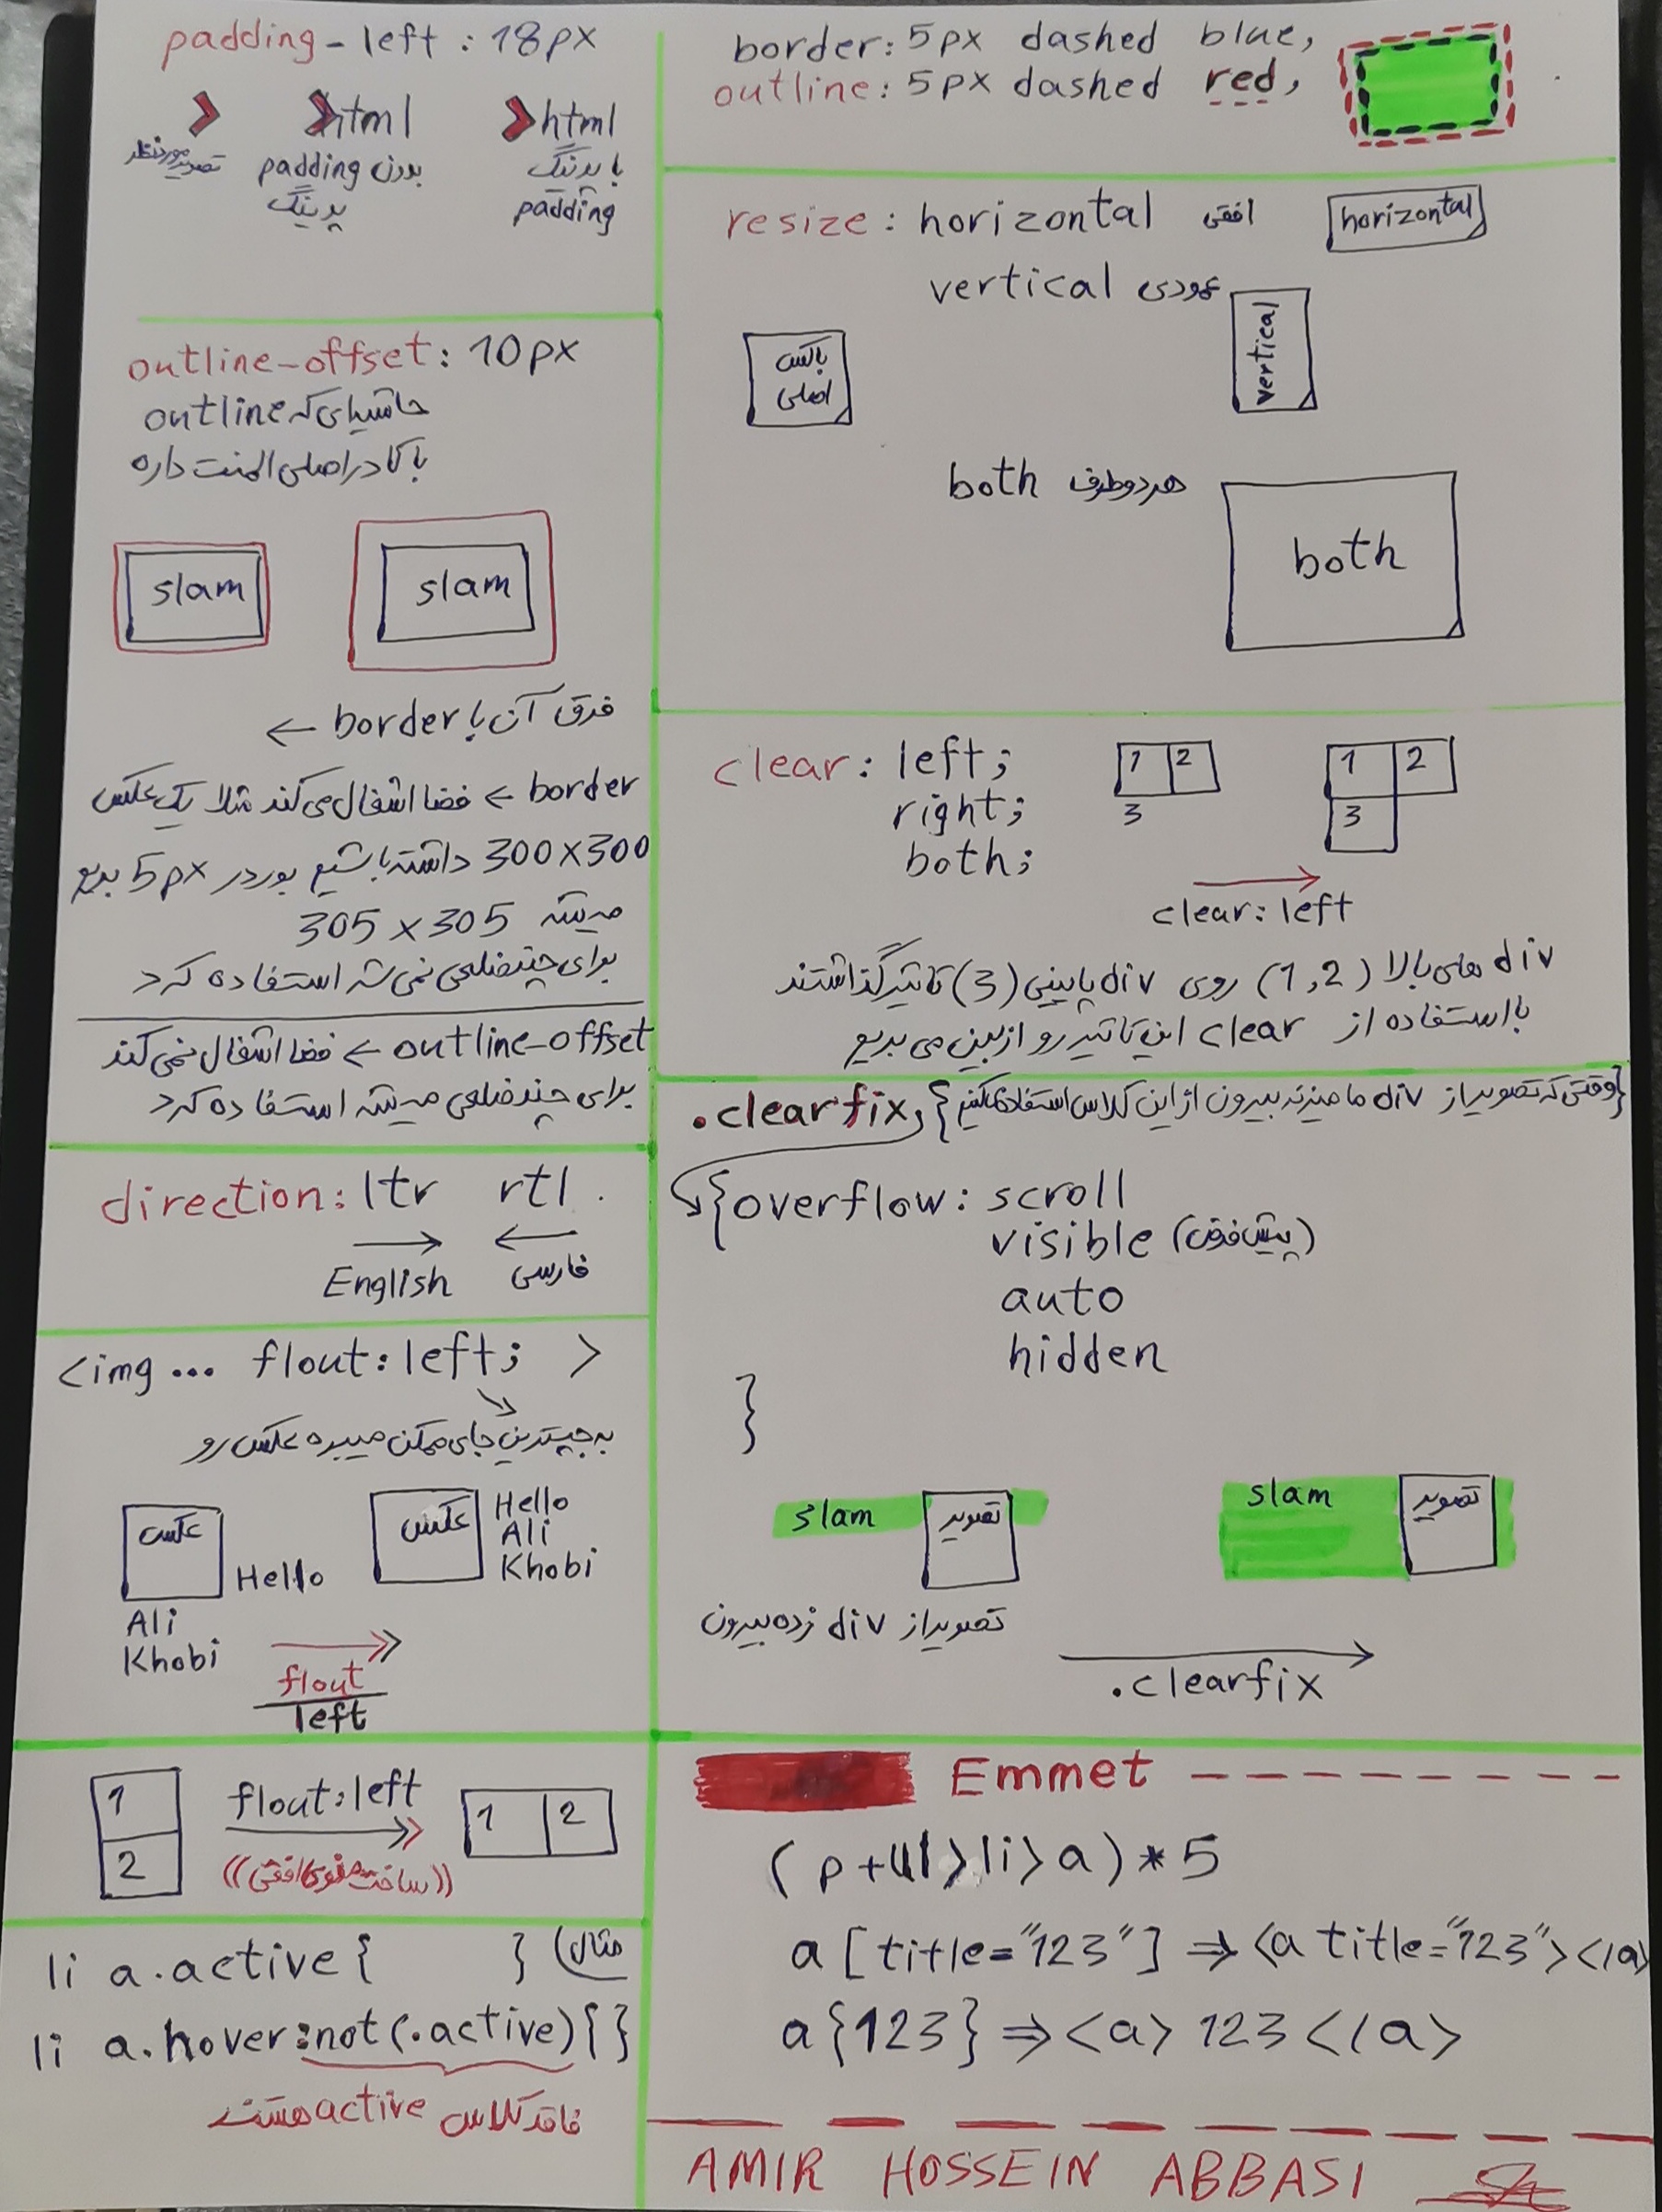 padding-left : 18px
html html
تصویر موردنظر
padding بدون
پدینگ
با پدینگ
padding
outline-offset: 10px
حاشیه‌ای که outline
با کادر اصلی المنت داره
slam slam
فرق آن با border ←
border ← فضا اشغال می‌کند مثلا یک عکس
300x300 داشته باشیم بوردر 5px بدیم
میشه 305 x 305
برای چندضلعی نمی‌شه استفاده کرد
outline-offset ← فضا اشغال نمی‌کند
برای چندضلعی میشه استفاده کرد
direction: ltr rtl
English فارسی
<img ... flout: left; >
به چپ‌ترین جای ممکن میبره عکس رو
عکس
Hello
Ali
Khobi
عکس
Hello
Ali
Khobi
flout
left
1
2
flout: left
((ساخت منوی افقی))
1 2
li a.active{ } (مثال
li a.hover:not(.active){}
فاقد کلاس active هست
border: 5px dashed blue,
outline: 5px dashed red,
resize: horizontal افقی
horizontal
vertical عمودی
vertical
باکس
اصلی
both هر دو طرف
both
clear: left;
right;
both;
1 2
3
1 2
3
clear: left
div های بالا (1,2) روی div پایینی (3) تاثیر گذاشتند
با استفاده از clear این تاثیر رو از بین می بریم
.clearfix, {وقتی که تصویر از div ما میزنه بیرون از این کلاس استفاده میکنیم}
{overflow: scroll
visible (پیش فرض)
auto
hidden
}
slam تصویر
slam تصویر
تصویر از div زده بیرون
.clearfix
Emmet
(p+ul>li>a)*5
a[title="123"] ⇒ <a title="123"></a>
a{123} ⇒ <a> 123 </a>
AMIR HOSSEIN ABBASI